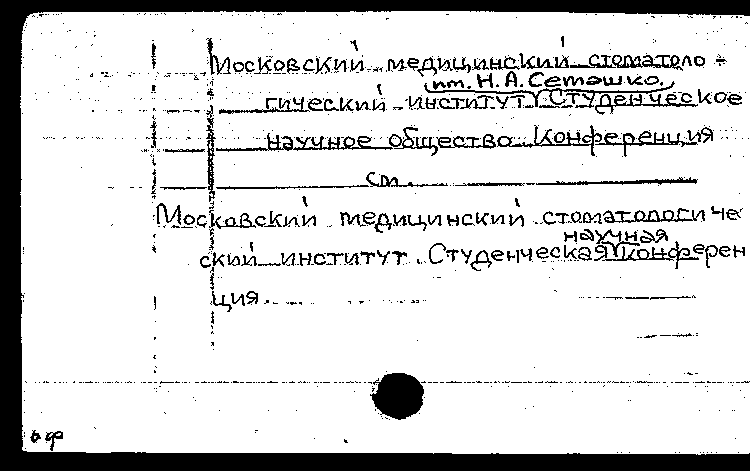 Московский медицинский стоматоло-
им. Н.А.Семашко.
гический институт Студенческое
научное общество. Конференция
см.
Московский медицинский стоматологиче
научная
ский институт. Студенческая конферен
ция.